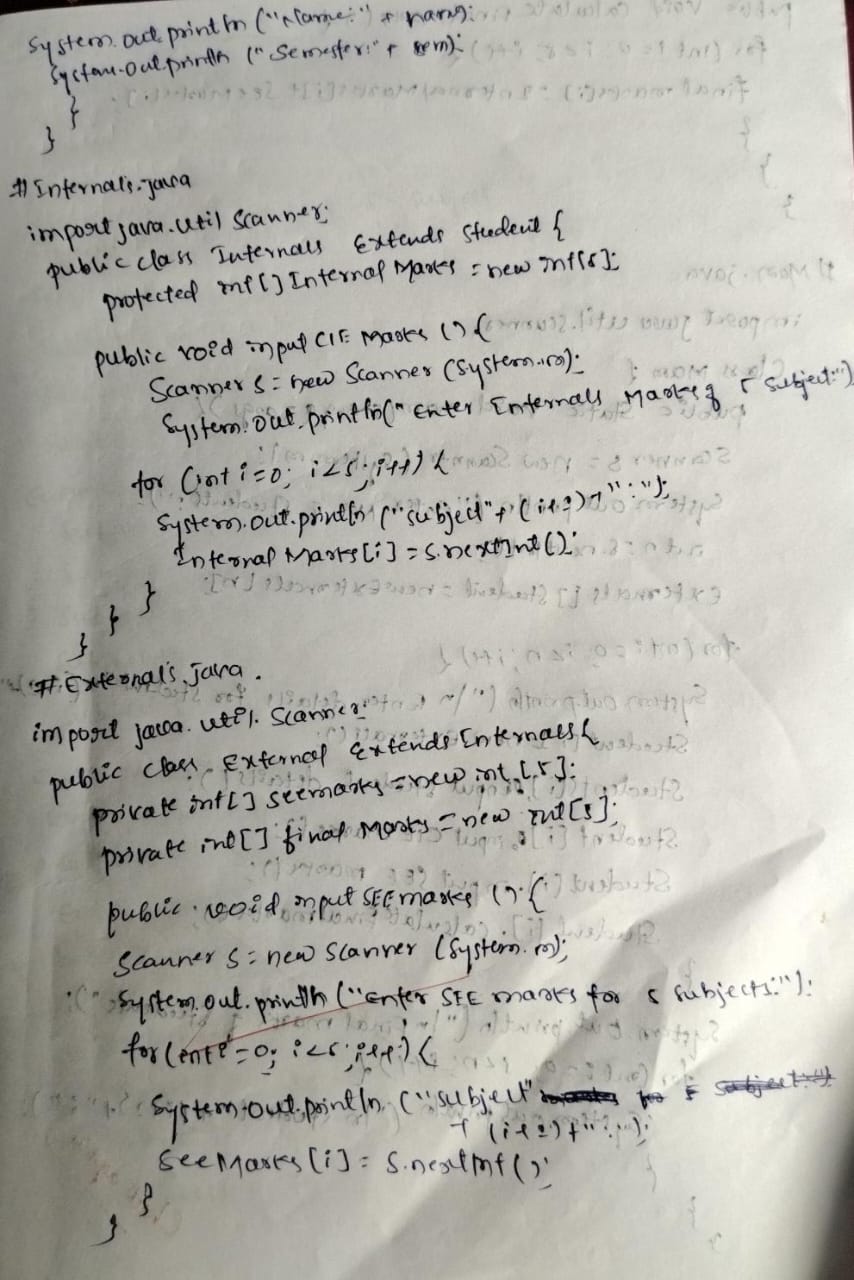 System.out.println ("Name:" + name);
System.out.println ("Semester:" + sem);
}
}
# Internals.java
import java.util Scanner;
public class Internals Extends Student {
protected int [] Internal Marks = new int[5];
public void input CIE Marks () {
Scanner s = new Scanner (System.in);
System.out.println(" Enter Internals Marks of 5 Subject:")
for (int i=0; i<5; i++) {
System.out.println ("subject" + (i+1)+":");
Internal Marks [i] = s.nextInt ();
}
}
}
# Externals.java.
import java.util. Scanner;
public class External Extends Internals {
private int [] seemarks = new int [5];
private int [] final Marks = new int [5];
public void input SEE marks () {
Scanner s = new Scanner (System.in);
System.out.println ("Enter SEE marks for 5 subjects:");
for (int i=0; i<5; i++) {
System.out.println ("subject"
+ (i+1)+":");
see Marks [i] = s.nextInt ();
}
}